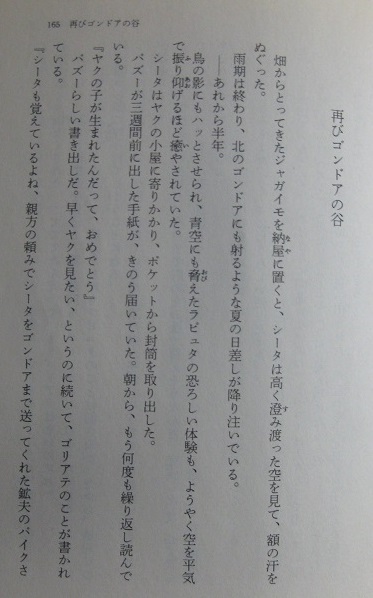 165 再びゴンドアの谷
再びゴンドアの谷
畑からとってきたジャガイモを納屋に置くと、シータは高く澄み渡った空を見て、額の汗を
ぬぐった。
雨期は終わり、北のゴンドアにも射るような夏の日差しが降り注いでいる。
――あれから半年。
鳥の影にもハッとさせられ、青空にも脅えたラピュタの恐ろしい体験も、ようやく空を平気
で振り仰げるほど癒やされていた。
シータはヤクの小屋に寄りかかり、ポケットから封筒を取り出した。
パズーが三週間前に出した手紙が、きのう届いていた。朝から、もう何度も繰り返し読んで
いる。
『ヤクの子が生まれたんだって、おめでとう』
パズーらしい書き出しだ。早くヤクを見たい、というのに続いて、ゴリアテのことが書かれ
ている。
『シータも覚えているよね、親方の頼みでシータをゴンドアまで送ってくれた鉱夫のパイクさ